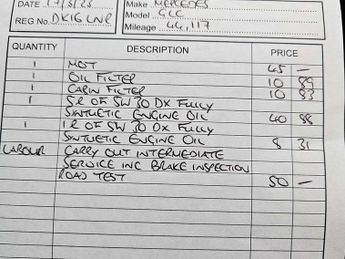 DATE 17/5/23 Make MERCEDES
Model GLC
REG No. DK16 LNR Mileage 44,117
QUANTITY DESCRIPTION PRICE
1 MOT 45 —
1 OIL FILTER 10 89
1 CABIN FILTER 10 83
1 5LR OF 5W 30 DX FULLY
SYNTHETIC ENGINE OIL 40 88
1 1LR OF 5W 30 DX FULLY
SYNTHETIC ENGINE OIL 8 31
LABOUR CARRY OUT INTERMEDIATE
SERVICE INC BRAKE INSPECTION
ROAD TEST 50 —